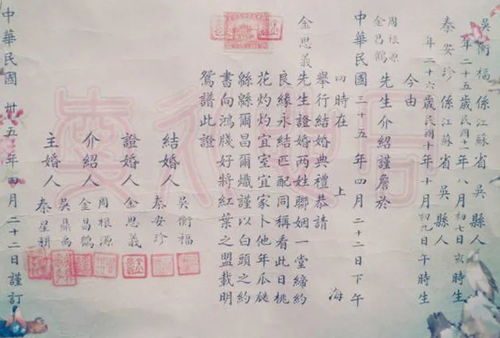 吳衡福係江蘇省吳縣人
年二十五歲民國十一年八月初七日寅時生
秦安珍係江蘇省吳縣人
年二十六歲民國十年十月初九日午時生
今由
周根源
金昌鶴
先生介紹謹詹於
中華民國三十五年四月二十二日下午
四時在上海
舉行結婚典禮恭請
金思義先生證婚両姓聯姻一堂締約
良緣永結匹配同稱看此日桃
花灼灼宜室宜家卜他年瓜瓞
緜緜爾昌爾熾謹以白頭之約
書向鴻牋好將紅葉之盟載明
鴛譜此證
結婚人
吳衡福
秦安珍
證婚人
金思義
介紹人
周根源
金昌鶴
主婚人
秦星耕
中華民國卅五年四月二十二日謹訂